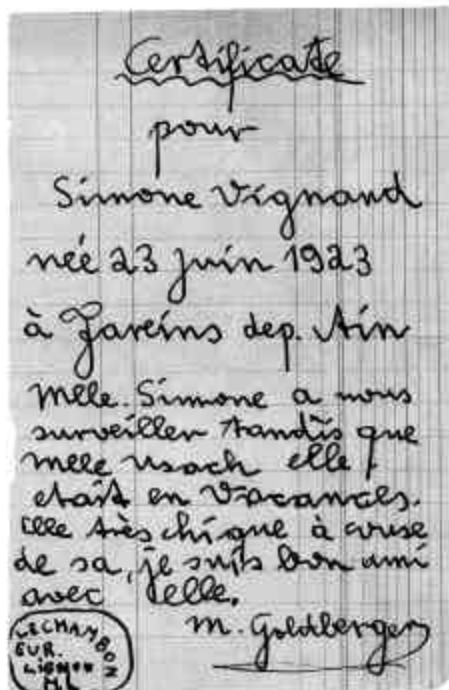 Certificate
pour
Simone Vignand
née 23 Juin 1923
à Jareins dep. Ain
Melle. Simone a nous
surveiller tandis que
melle usach elle
etait en Vacances.
elle très chique à couse
de sa, je suits bon ami
avec elle.
M. Goldberger
LECHAMBON
SUR.
LIGNON
H.L